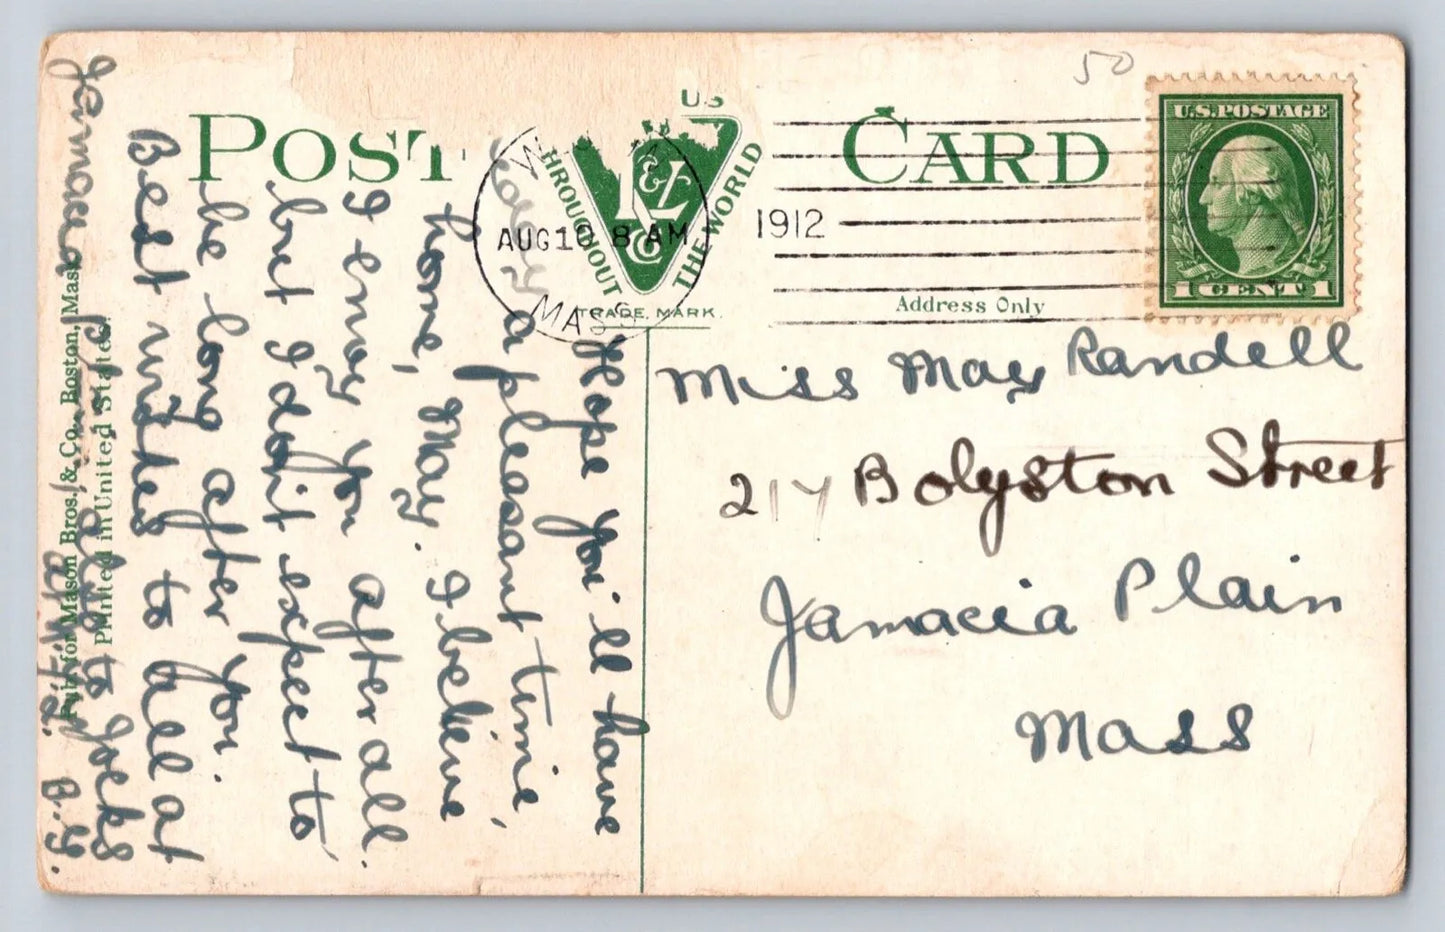 50
POST CARD
U.S. POSTAGE
1 CENT 1
US
THROUGHOUT THE WORLD
R & L Co
TRADE MARK.
AUG 10 8 AM
1912
MASS
Address Only
Miss May Randell
217 Bolyston Street
Jamacia Plain
Mass
Hope you'll have
a pleasant time,
here, May. I believe
I envoy you after all.
but I don't expect to
be long after you.
Best wishes to all at
Jamacia plain also to Jocks
at H. B.G.
Pub. for Mason Bros. & Co., Boston, Mass.
Printed in United States.